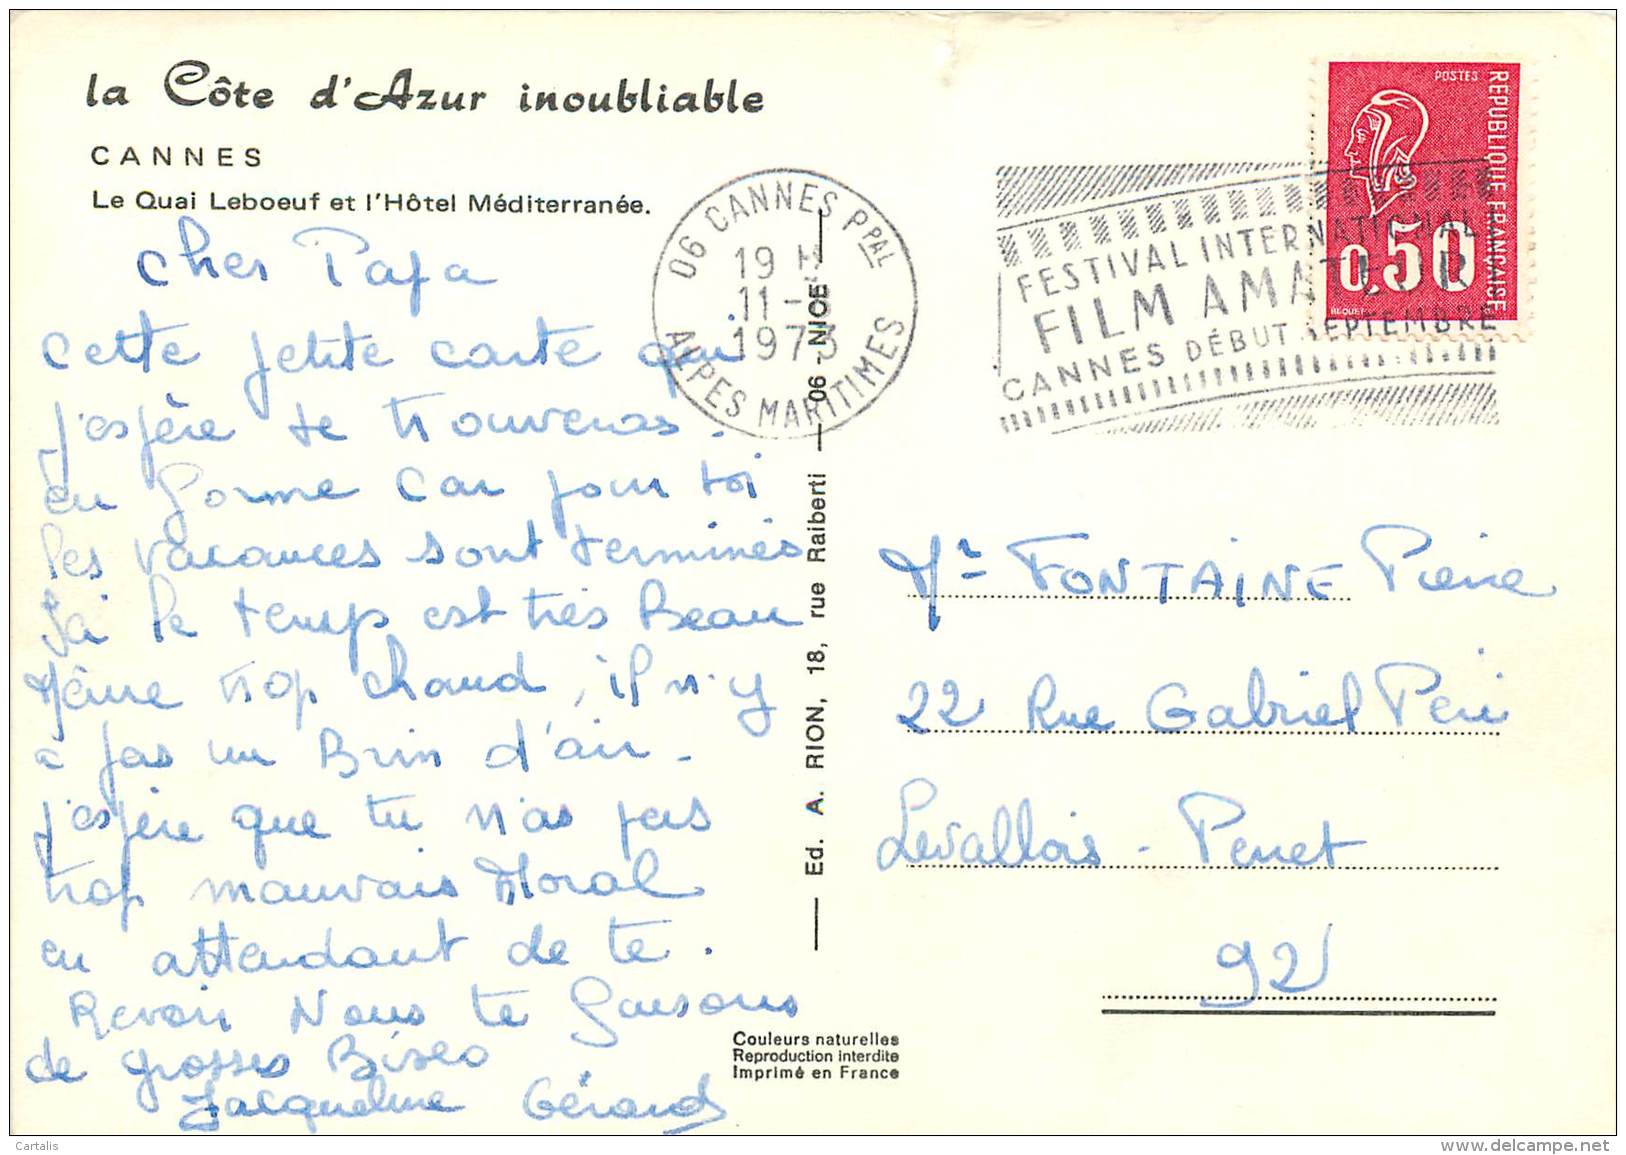 la Côte d'Azur inoubliable
CANNES
Le Quai Leboeuf et l'Hôtel Méditerranée.
Cher Papa
cette petite carte qui
j'espère te trouveras.
en forme car pour toi
les vacances sont terminés
le temps est très Beau
Même trop chaud, il n'y
a pas un Brin d'air.
j'espère que tu n'as pas
trop mauvais Moral
en attendant de te.
Revoir Nous te faisons
de grosses Bises
Jacqueline Gérard
06 CANNES PPAL
19 H
11 -
1973
ALPES MARITIMES
FESTIVAL INTERNATIONAL
FILM AMATEUR
CANNES DÉBUT SEPTEMBRE
POSTES
REPUBLIQUE FRANÇAISE
0,50
BEQUET
Ed. A. RION, 18, rue Raiberti — 06 - NICE
Mr FONTAINE Pierre
22 Rue Gabriel Péri
Levallois - Perret
92
Couleurs naturelles
Reproduction interdite
Imprimé en France
Cartalis
www.delcampe.net